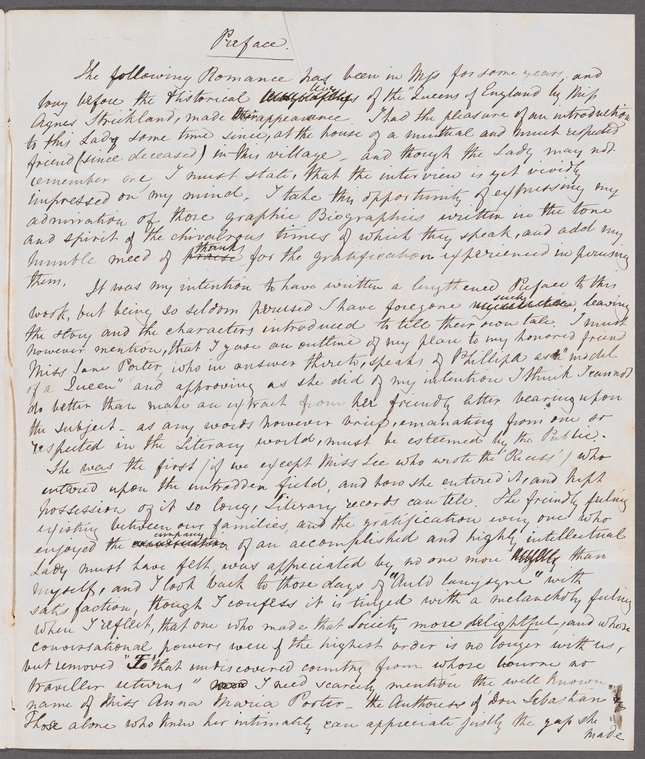 Preface.
The following Romance has been in Mss for some years, and
long before the Historical lives of the "Queens of England by Miss
Agnes Strickland, made appearance. I had the pleasure of an introduction
to this Lady some time since, at the house of a mutual and much respected
friend (since deceased) in this village - and though the Lady may not
remember one, I must state, that the interview is yet vividly
impressed on my mind. I take this opportunity of expressing my
admiration of those graphic Biographies written in the tone
and spirit of the chivalrous times of which they speak, and add my
humble meed of praise thanks for the gratification experienced in perusing
them.
It was my intention to have written a lengthened Preface to this
work, but being so seldom perused I have foregone such leaving
the story and the characters introduced to tell their own tale. I must
however mention, that I gave an outline of my plan to my honored friend
Miss Jane Porter, who in answer thereto, speaks of Phillipa as a "model
of a Queen" and approving as she did of my intention I think I cannot
do better than make an extract from her friendly letter bearing upon
the subject - as any words however brief, emanating from one so
respected in the Literary world, must be esteemed by the Public.
She was the first (if we except Miss Lee who wrote the "Recess") who
entered upon the untrodden field, and how she entered it, and kept
possession of it so long, Literary records can tell. The friendly feeling
existing between our families, and the gratification every one who
enjoyed the conversation company of an accomplished and highly intellectual
Lady must have felt, was appreciated by no one more than
myself, and I look back to those days of "Auld lang syne" with
satisfaction, though I confess it is tinged with a melancholy feeling
when I reflect, that one who made that Society more delightful, and whose
conversational powers were of the highest order is no longer with us,
but removed "To that undiscovered country from whose bourne no
traveller returns" I need scarcely mention the well known
name of Miss Anna Maria Porter - the Authoress of Don Sebastian &c
Those alone who knew her intimately can appreciate justly the gap she
made